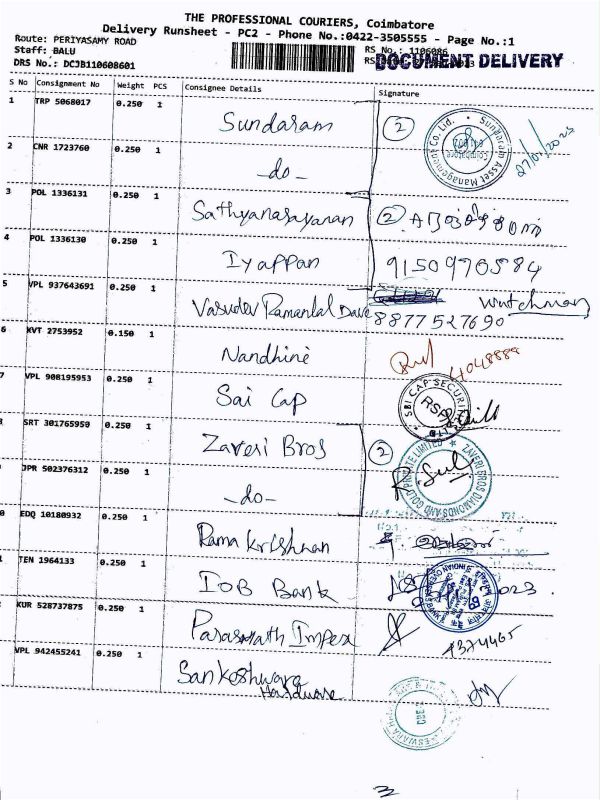 THE PROFESSIONAL COURIERS, Coimbatore
Delivery Runsheet - PC2 - Phone No.:0422-3505555 - Page No.:1
Route: PERIYASAMY ROAD
Staff: BALU
DRS No.: DCJB110608601
RS No.: 1106086
DOCUMENT DELIVERY
S No Consignment No Weight PCS Consignee Details Signature
1 TRP 5068017 0.250 1 Sundaram 2 27/01/2023
Sundaram Asset Management Co. Ltd. Coimbatore
2 CNR 1723760 0.250 1 -do-
3 POL 1336131 0.250 1 Sathyanarayanan 2
4 POL 1336130 0.250 1 Iyappan 9150970584
5 VPL 937643691 0.250 1 Vasudev Ramanlal Dave watchman
8877527690
6 KVT 2753952 0.150 1 Nandhine
7 VPL 908195953 0.250 1 Sai Cap
SBI CAP SECURITIES LTD RSP
SRT 301765950 0.250 1 Zaveri Bros 2
ZAVERI BROS DIAMONDS AND GOLD PRIVATE LIMITED
JPR 502376312 0.250 1 -do-
0 EDQ 10180932 0.250 1 Rama krishnan
1 TEN 1964133 0.250 1 IOB Bank
2 KUR 528737875 0.250 1 Parasnath Impex
VPL 942455241 0.250 1 Sankeshwara
Hardware
3